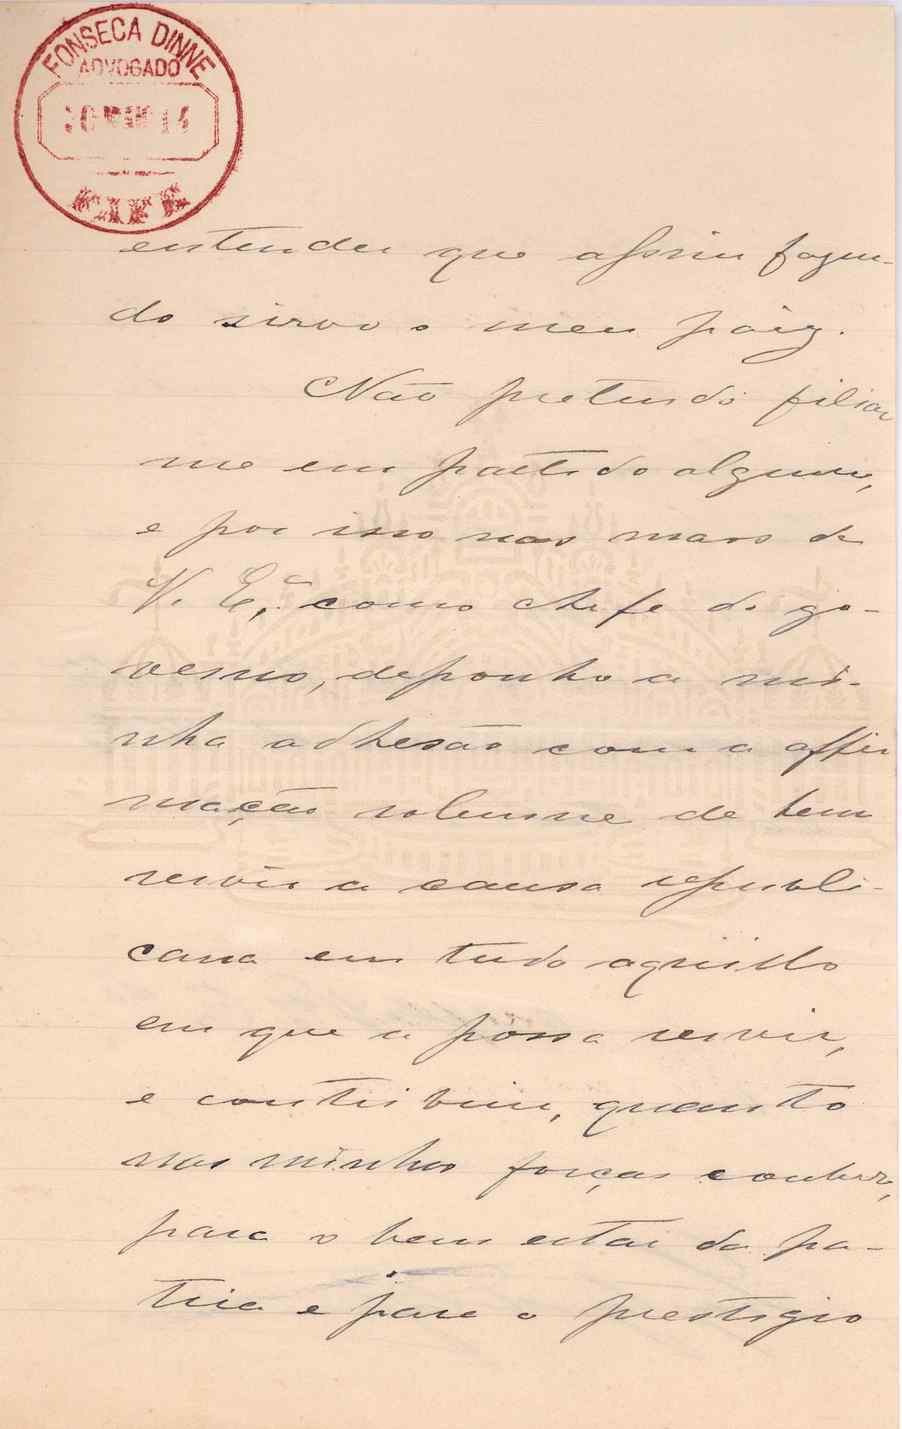 FONSECA DINNE
ADVOGADO
entender que assim fazen-
do sirvo o meu paiz.
Não pretendo filiar
me em partido algum,
e por isso nas maos de
V. E.ª como chefe do go-
verno, deponho a mi-
nha adhesão com a affir
mação solemne de bem
servir a causa republi-
cana em tudo aquillo
em que a possa servir,
e contribuir, quanto
nas minhas forças couber,
para o bem estar da pa-
tria e para o prestigio